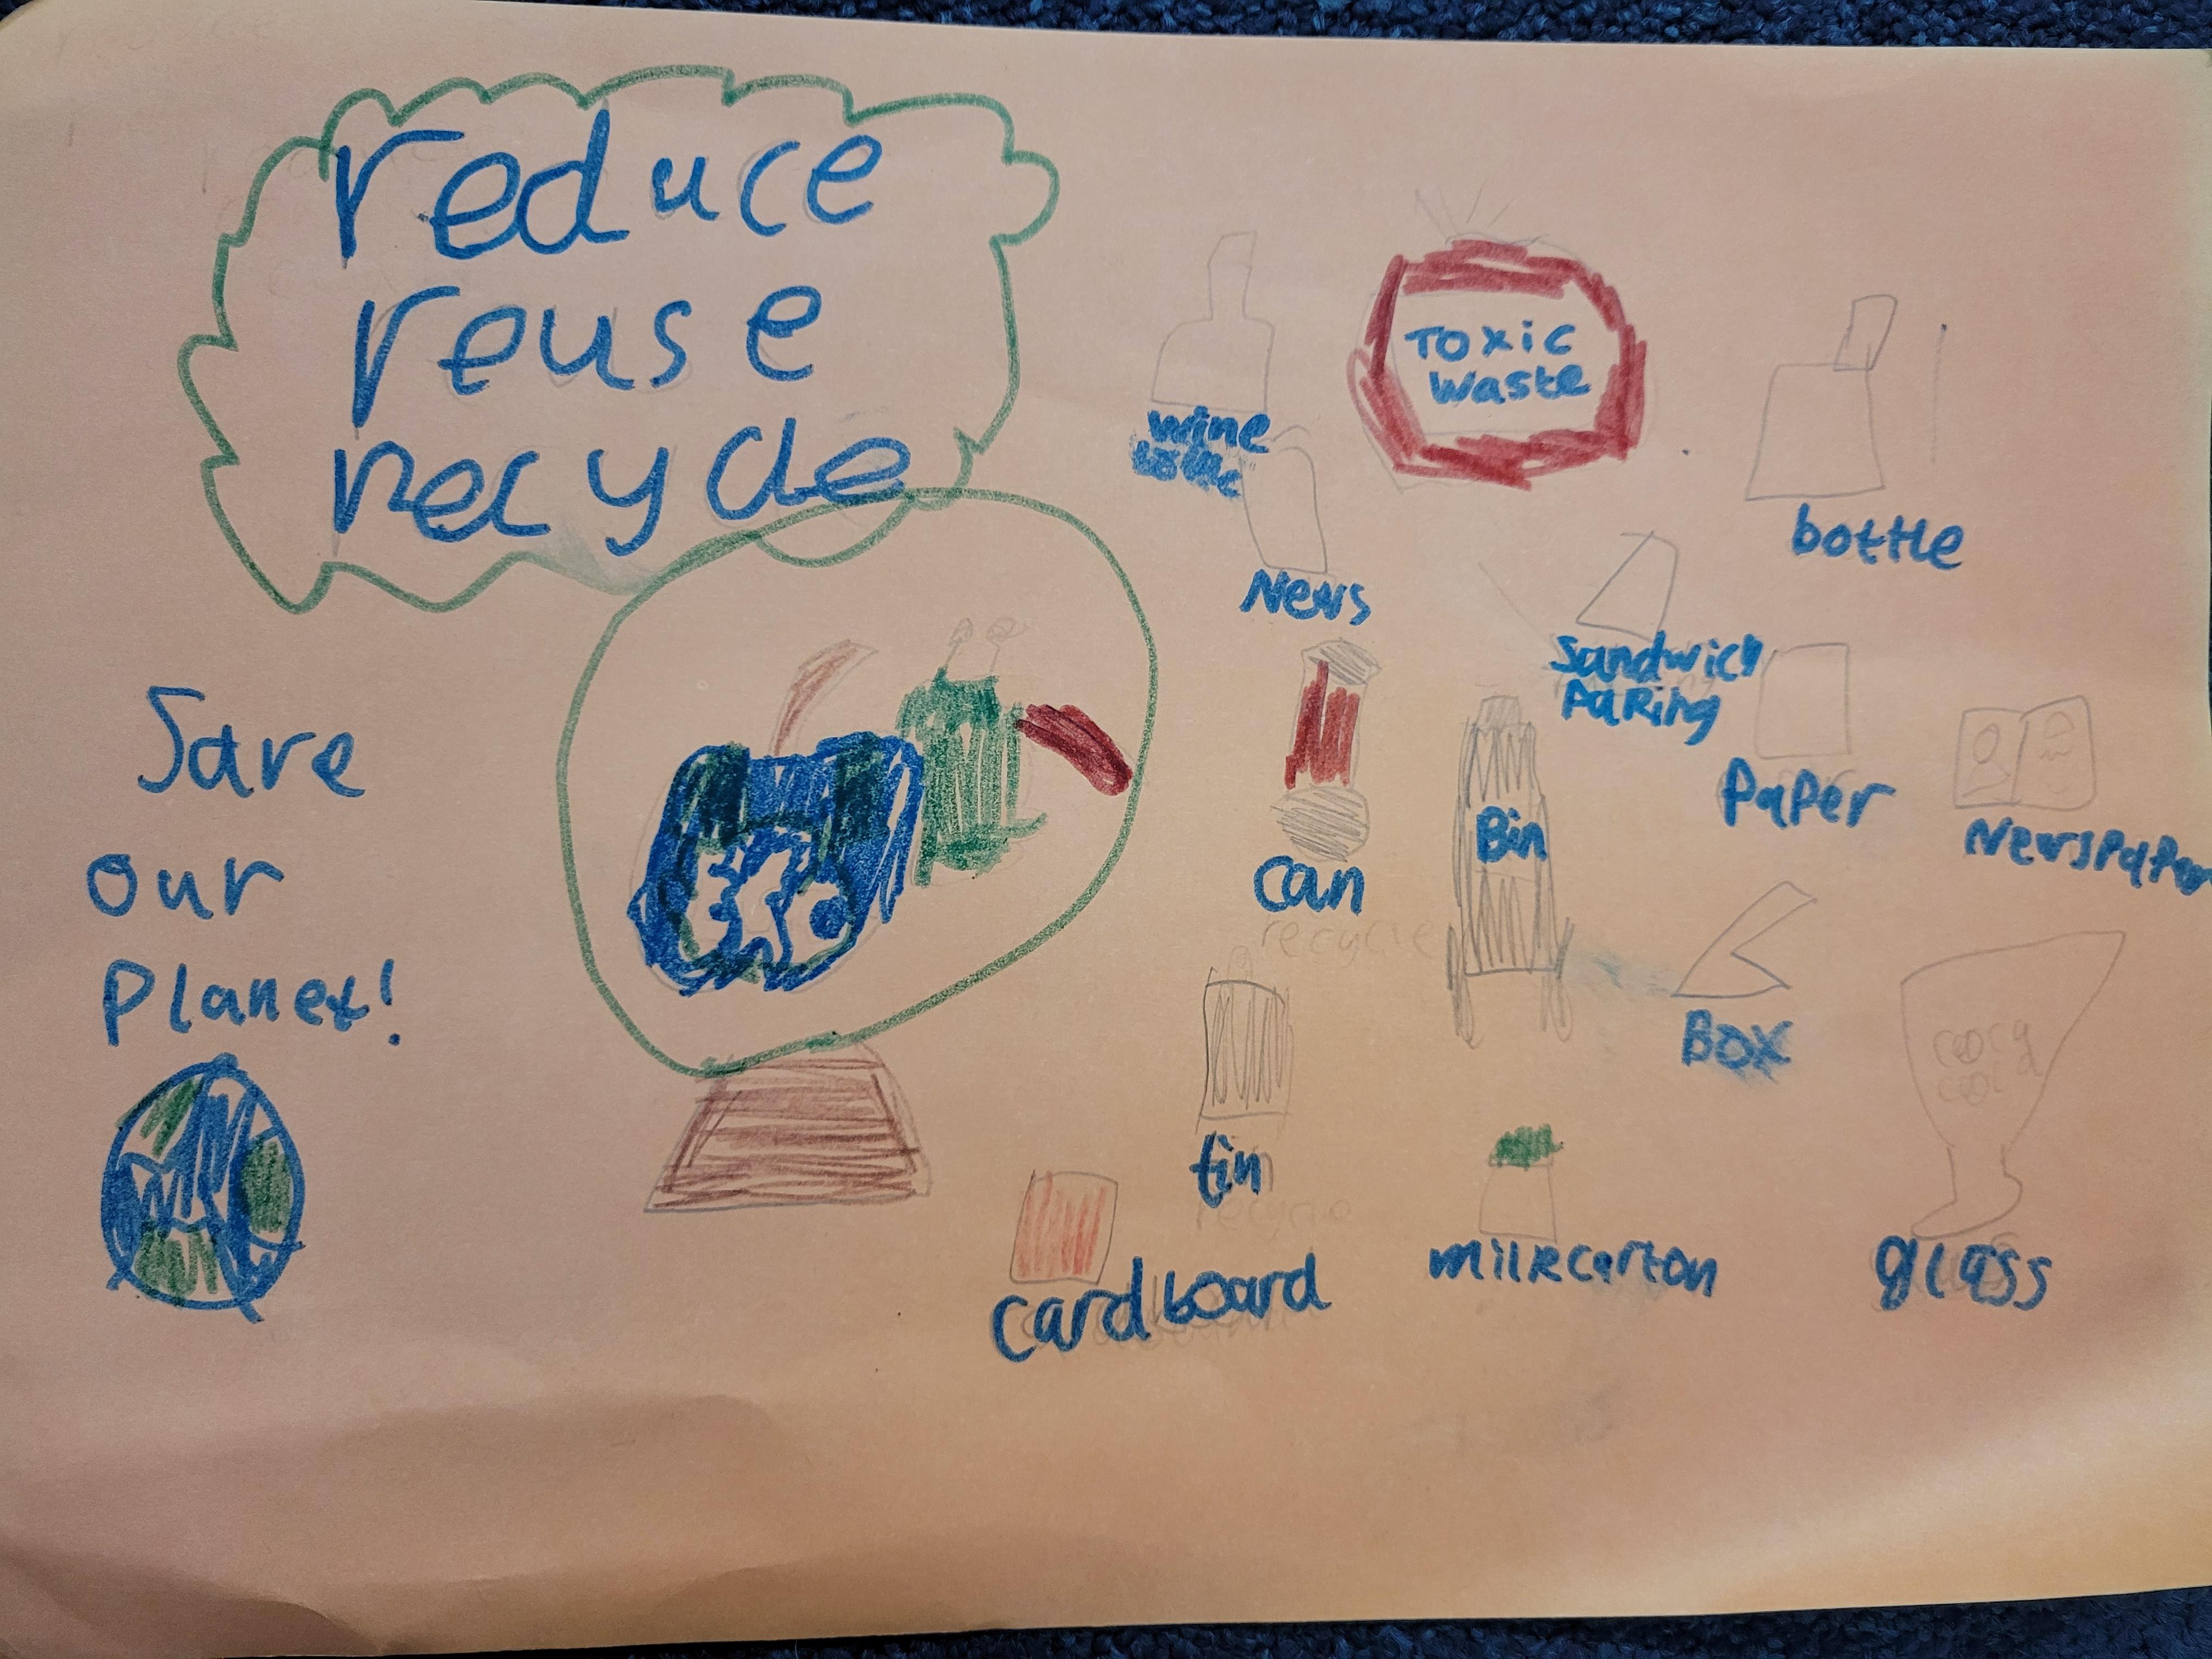 reduce
reuse
recycle
Save
our
Planet!
TOXIC
waste
wine
bottle
bottle
News
Sandwich
PaKing
Paper
Newspaper
can
recycle
Bin
BOX
tin
recycle
cardboard
milkcarton
glass